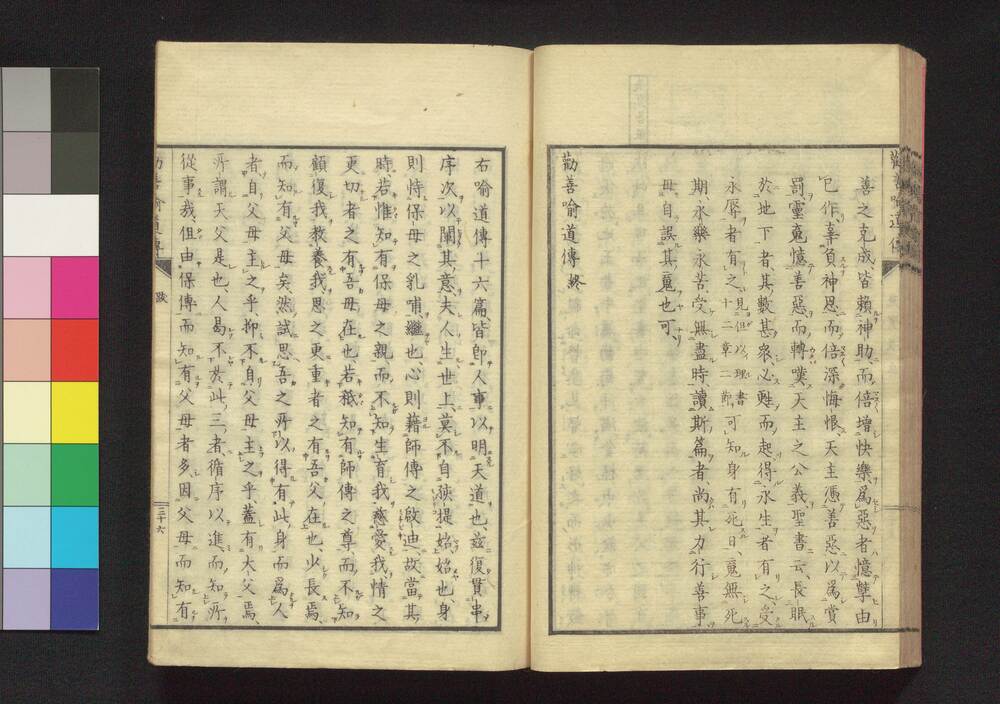 善之克成、皆賴神助、而倍增快樂、爲惡者、憶孽由
已作、辜負神恩、而倍深悔恨、天主憑善惡以爲賞
罰、靈䰟憶善惡而轉嘆、天主之公義、聖書云、長眠
於地下者、其數甚衆、必甦而起、得永生者有之、受
永辱者有之、見但以理書十二章二節、可知身有死日、䰟無死
期、永樂永苦、受無盡時、讀斯篇者、尚其力行善事、
毋自誤其䰟也可、
勸善喻道傳終
右喻道傳十六篇、皆即人事以明天道也、茲復貫串
序次、以闡其意、夫人生世上、莫不自孩提始、始也身
則恃保母之乳哺、繼也心則藉師傅之啟迪、故當其
時、若惟知有保母之親、而不知生育我、慈愛我、情之
更切者之有吾母在也、若秪知有師傅之尊、而不知
顧復我、教養我、思之更重者之有吾父在也、少長焉
而知有父母矣、然試思、吾之所以得有此身而爲人
者、自父母主之乎、抑不自父母主之乎、蓋有大父焉、
所謂天父是也、人曷不於此三者、循序以進、而知所
從事哉、但由保傅而知有父母者多、因父母而知有
勸善喻道傳
跋
三十六